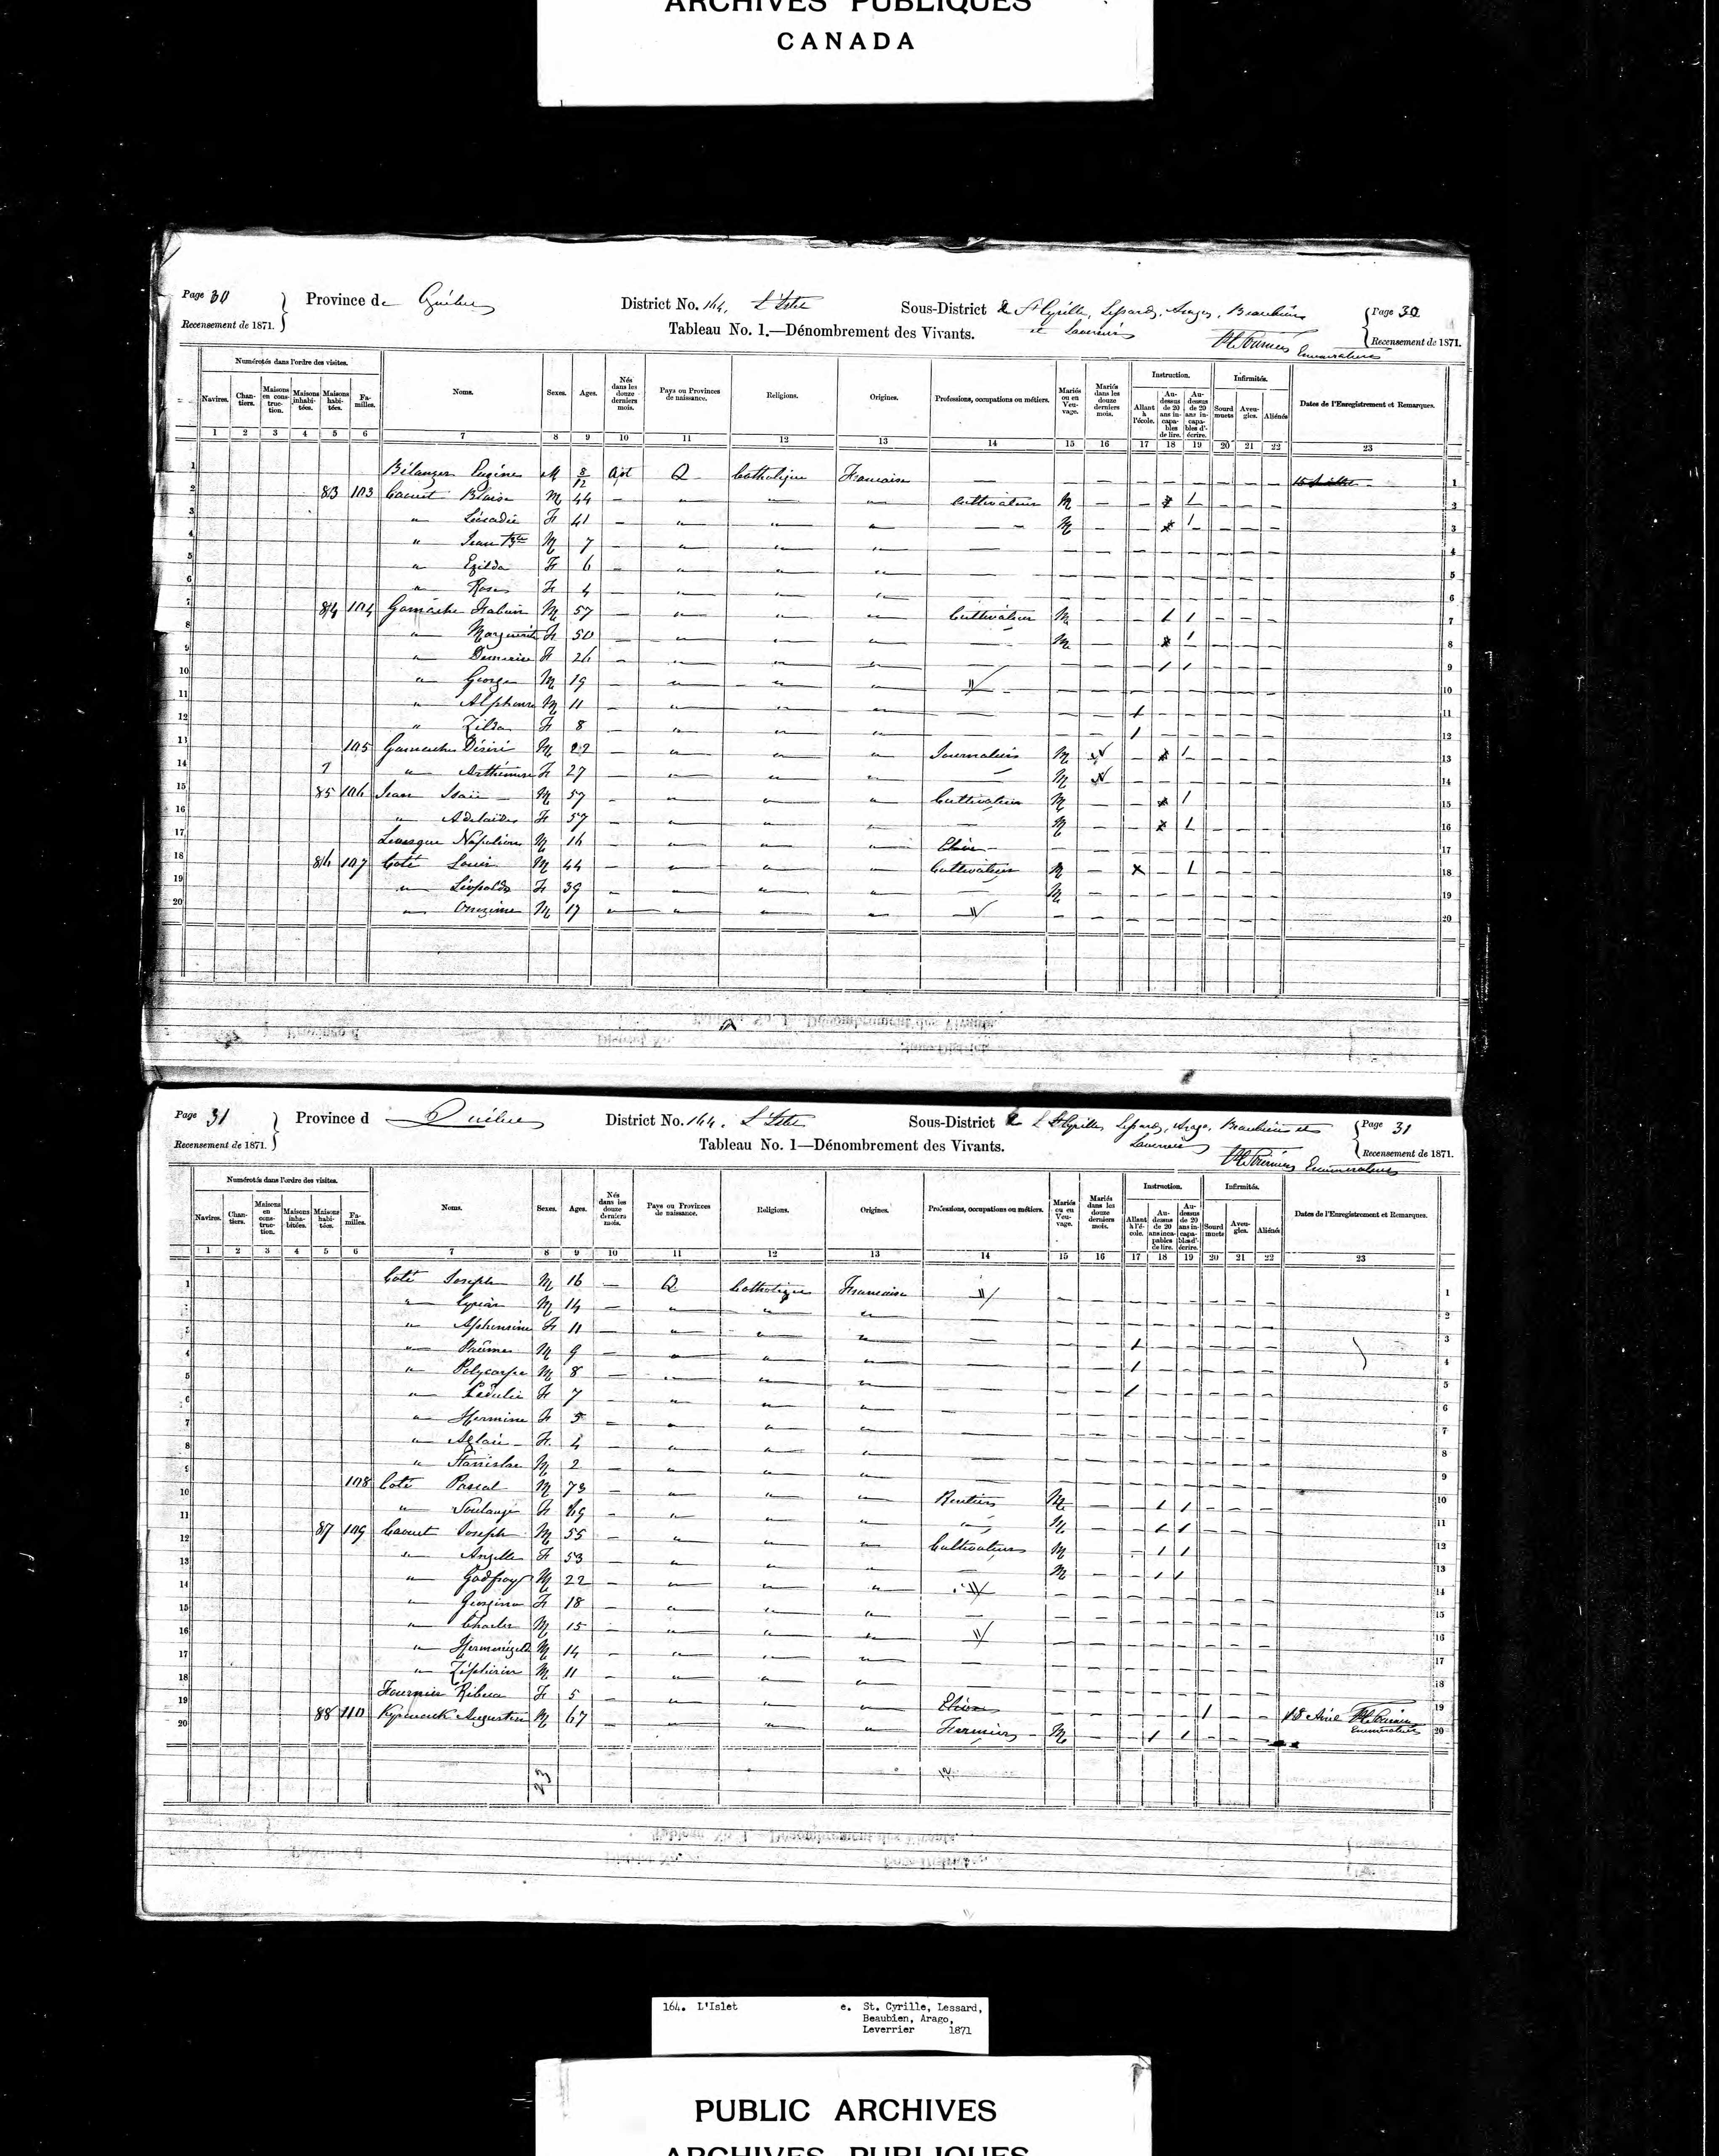 ARCHIVES PUBLIQUES
CANADA
Page 30 Province de Québec District No. 164. L'Islet Sous-District e St Cyrille, Lessard, Arago, Beaubien Page 30
Recensement de 1871. Tableau No. 1.—Dénombrement des Vivants. et Recensement de 1871.
Enumérateur
Numérotés dans l'ordre des visites. Instruction. Infirmités.
Navires. Chantiers. Maisons en construction. Maisons inhabitées. Maisons habitées. Familles. Noms. Sexes. Ages. Nés dans les douze derniers mois. Pays ou Provinces de naissance. Religions. Origines. Professions, occupations ou métiers. Mariés ou en Veuvage. Mariés dans les douze derniers mois. Allant à l'école. Au-dessus de 20 ans incapables de lire. Au-dessus de 20 ans incapables d'écrire. Sourd muets Aveugles. Aliénés Dates de l'Enregistrement et Remarques.
1 2 3 4 5 6 7 8 9 10 11 12 13 14 15 16 17 18 19 20 21 22 23
1 Bélanger Eugène M 8/12 Aöt Q Catholique Francaise — 1
2 83 103 Caouet Blaise M 44 — " " " Cultivateur M — — 1 1 2
3 " Léocadie F 41 — " " " — M — — 1 1 3
4 " Jean Bte M 7 — " " " — 4
5 " Ezilda F 6 — " " " — 5
6 " Rose F 4 — " " " — 6
7 84 104 Gamache Fabien M 57 — " " " Cultivateur M — — 1 1 7
8 " Marguerite F 50 — " " " — M — — 1 1 8
9 " Demerise F 26 — " " " — 1 1 9
10 " George M 19 — " " " " 10
11 " Alphonse M 11 — " " " — 1 11
12 " Zilda F 8 — " " " — 1 12
13 105 Gamache Désiré M 22 — " " " Journalier M — 1 1 13
14 " Arthémise F 27 — " " " — M 14
15 85 106 Jean Isaïe M 57 — " " " Cultivateur M — — 1 1 15
16 " Adelaide F 57 — " " " — M — — 1 1 16
17 Levesque Napoléon M 16 — " " " — 17
18 86 107 Coté Louis M 44 — " " " Cultivateur M — x — 1 18
19 " Léopolde F 39 — " " " — M 19
20 " Onezime M 17 — " " " " 20
Page 31 Province d Québec District No. 164. L'Islet Sous-District e St Cyrille, Lessard, Arago, Beaubien et Page 31
Recensement de 1871. Tableau No. 1—Dénombrement des Vivants. Recensement de 1871.
Enumerateur
Numérotés dans l'ordre des visites. Instruction. Infirmités.
Navires. Chantiers. Maisons en construction. Maisons inhabitées. Maisons habitées. Familles. Noms. Sexes. Ages. Nés dans les douze derniers mois. Pays ou Provinces de naissance. Religions. Origines. Professions, occupations ou métiers. Mariés ou en Veuvage. Mariés dans les douze derniers mois. Allant à l'école. Au-dessus de 20 ans incapables de lire. Au-dessus de 20 ans incapables d'écrire. Sourd muets Aveugles. Aliénés Dates de l'Enregistrement et Remarques.
1 2 3 4 5 6 7 8 9 10 11 12 13 14 15 16 17 18 19 20 21 22 23
1 Coté Joseph M 16 — Q Catholique Francaise " 1
2 " Cyprien M 14 — " " " 2
3 " Alphonsine F 11 — " " " — 1 3
4 " M 9 — " " " — 1 4
5 " Polycarpe M 8 — " " " — 1 5
6 " F 7 — " " " — 6
7 " Hermine F 5 — " " " — 7
8 " Aglaé F 4 — " " " — 8
9 " Stanislas M 2 — " " " — 9
10 108 Coté Pascal M 73 — " " " Rentier M — — 1 1 10
11 " Soulange F 69 — " " " " M — — 1 1 11
12 87 109 Caouet Joseph M 55 — " " " Cultivateur M — — 1 1 12
13 " Angelle F 53 — " " " — M — — 1 1 13
14 " Godfroy M 22 — " " " " 14
15 " Georgina F 18 — " " " — 15
16 " Charles M 15 — " " " " 16
17 " Hermenégilde M 14 — " " " — 17
18 " Zéphirin M 11 — " " " — 18
19 Fournier F 5 — " " " 1 19
20 88 110 Augustin M 67 — " " " Fermier M — 1 1 18 Avril Enumerateur 20
23
164. L'Islet e. St. Cyrille, Lessard,
Beaubien, Arago,
Leverrier 1871
PUBLIC ARCHIVES
ARCHIVES PUBLIQUES